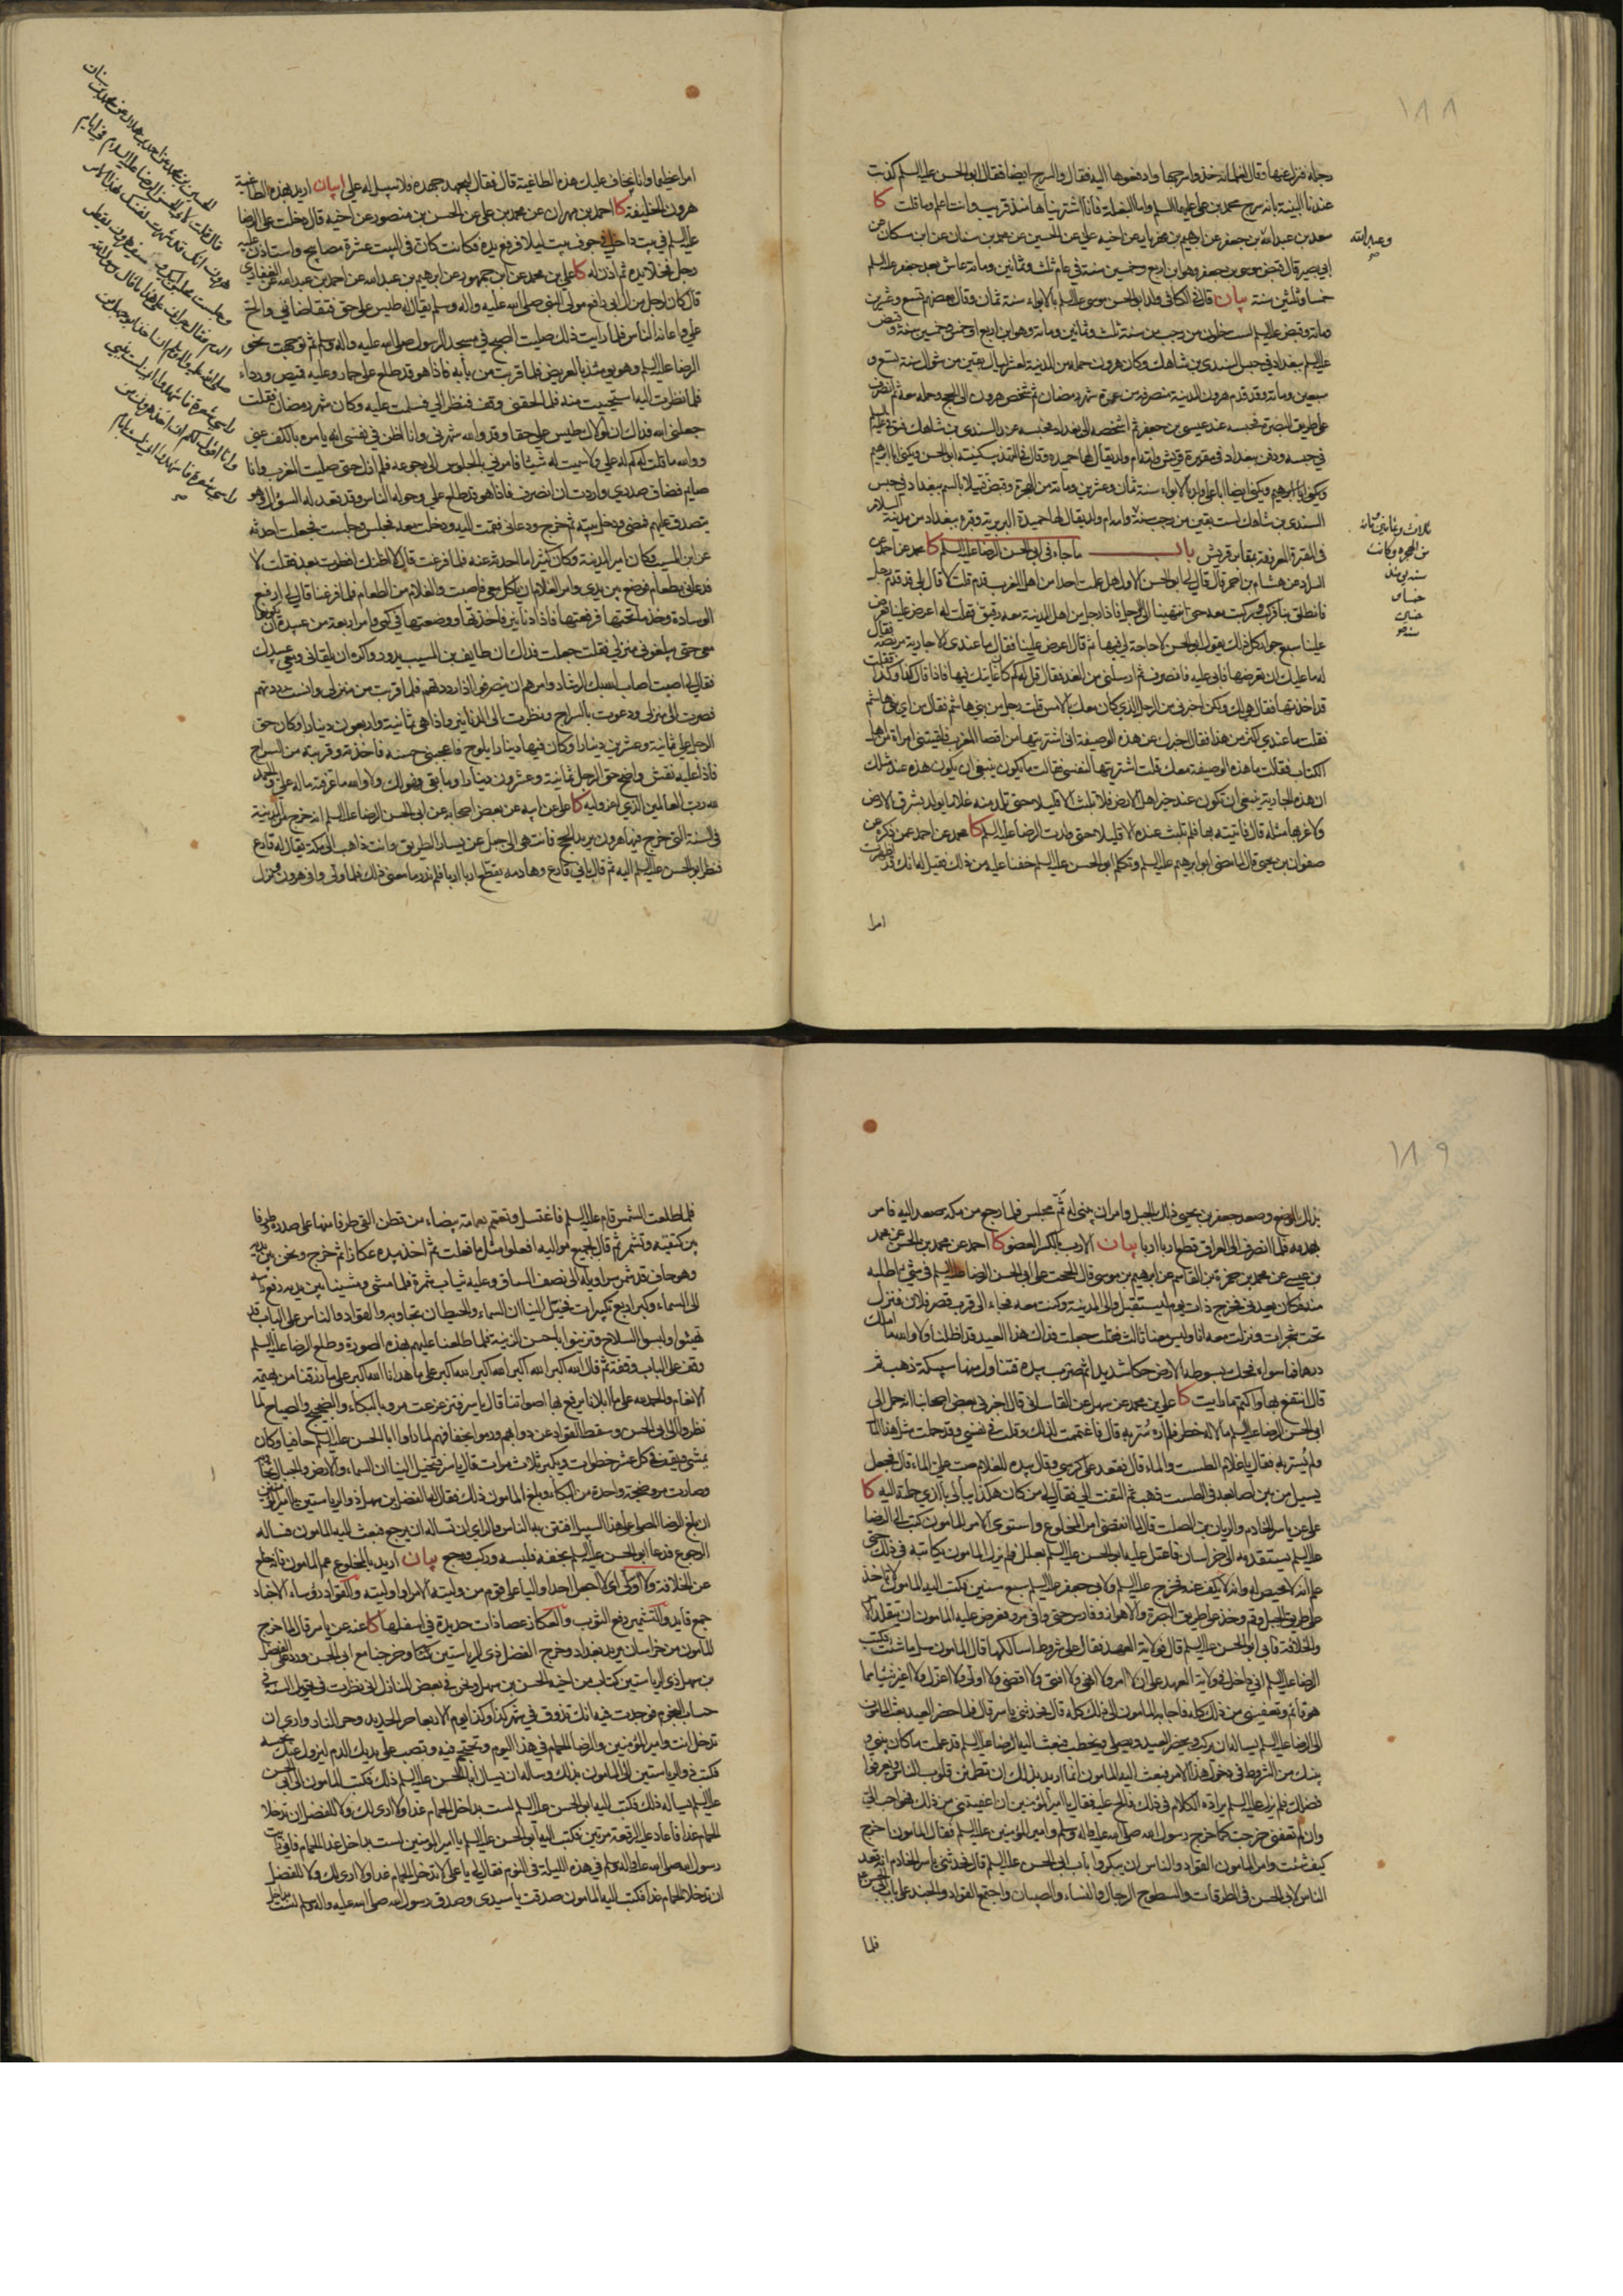 ١٨٨
رجله فنزل عنها وقال لغلمانه خذوا سرجها وادفعوها اليه فقال والسرج ايضا فقال ابو الحسن عليه السلم كذبت
عندنا البينة بانه سرج محمد بن علي عليهما السلم واما البغلة فانا اشتريناها منذ قريب وانت اعلم وما قلت كا
سعد بن عبد الله بن جعفر عن ابراهيم بن مهزيار عن اخيه علي عن الحسين عن محمد بن سنان عن ابن مسكان عن
وعبد الله
ابي بصير قال قبض موسى بن جعفر وهو ابن اربع وخمسين سنة في عام ثلث وثمانين ومائة عاش بعد جعفر عليه السلم
خمسا وثلثين سنة بيان قال في الكافي ولد ابو الحسن موسى عليه السلم بالابواء سنة ثمان وقال بعضهم تسع وعشرين
ومائة وقبض عليه السلم لست خلون من رجب من سنة ثلث وثمانين ومائة وهو ابن اربع او خمس وخمسين سنة وقبض
عليه السلم ببغداد في حبس السندي بن شاهك وكان هرون حمله من المدينة لعشر ليال بقين من شوال سنة تسع و
سبعين ومائة وقد قدم هرون المدينة منصرفه من عمرة شهر رمضان ثم شخص هرون الى الحج وحمله معه ثم انصرف
على طريق البصرة فحبسه عند عيسى بن جعفر ثم اشخصه الى بغداد فحبسه عند السندي بن شاهك فتوفي عليه السلم
في حبسه ودفن ببغداد في مقبرة قريش وامه ام ولد يقال لها حميدة وقال في التهذيب كنيته ابو الحسن ويكنى ابا ابراهيم
ويكنى ايضا ابا علي ولد بالابواء سنة ثمان وعشرين ومائة من الهجرة وقبض قتيلا بالسم ببغداد في حبس
السندي بن شاهك لست بقين من رجب سنة وامه ام ولد يقال لها حميدة البربرية وقبره ببغداد من مدينة السلام
ثلاث وثمانين ومائة
من الهجرة وكان
سنه يومئذ
خمسا و
خمسين
سنة
في المقبرة المعروفة بمقابر قريش باب ما جاء في ابي الحسن الرضا عليه السلم كا محمد عن احمد عن
السراد عن هشام بن احمر قال قال لي ابو الحسن الاول هل علمت احدا من اهل المغرب قدم قلت لا قال بلى قد قدم رجل
فانطلق بنا فركب وركبت معه حتى انتهينا الى الرجل فاذا رجل من اهل المدينة معه رقيق فقلت له اعرض علينا فعرض
علينا سبع جوار كل ذلك يقول ابو الحسن لا حاجة لي فيها ثم قال اعرض علينا فقال ما عندي الا جارية مريضة فقال
له ما عليك ان تعرضها فابى عليه فانصرف ثم ارسلني من الغد فقال قل له كم كان غايتك فيها فاذا قال كذا وكذا فقلت
قد اخذتها فقال هي لك ولكن اخبرني من الرجل الذي كان معك بالامس قلت رجل من بني هاشم فقال من اي بني هاشم
فقلت ما عندي اكثر من هذا فقال اخبرك عن هذه الوصيفة اني اشتريتها من اقصا المغرب فلقيتني امرأة من اهل
الكتاب فقالت ما هذه الوصيفة معك قلت اشتريتها لنفسي فقالت ما يكون ينبغي ان يكون هذه عند مثلك
ان هذه الجارية ينبغي ان تكون عند خير اهل الارض فلا تلبث الا قليلا حتى تلد منه غلاما يولد بشرق الارض
ولا غربها مثله قال فاتيته بها فلم تلبث عنده الا قليلا حتى ولدت الرضا عليه السلم كا محمد عن احمد عمن ذكره عن
صفوان بن يحيى قال لما مضى ابو ابرهيم عليه السلم وتكلم ابو الحسن عليه السلم خفنا عليه من ذلك فقيل له انك قد اظهرت
امرا
امرا عظيما وانا نخاف عليك هذه الطاغية قال فقال ليجهد جهده فلا سبيل له علي بيان اريد بهذه الطاغية
هرون الخليفة كا احمد بن مهران عن محمد بن علي عن الحسن بن منصور عن اخيه قال دخلت على الرضا
عليه السلم في بيت داخل في جوف بيت ليلا فرفع يده فكانت كان في البيت عشرة مصابيح واستاذن عليه
رجل فخلا يده ثم اذن له كا علي بن محمد عن ابن جمهور عن ابرهيم بن عبد الله عن احمد بن عبد الله عن الغفاري
قال كان لرجل من ال ابي رافع مولى النبي صلى الله عليه واله وسلم يقال له طيس علي حق فتقاضاني والح
علي واعانه الناس فلما رايت ذلك صليت الصبح في مسجد الرسول صلى الله عليه واله وسلم ثم توجهت نحو
الرضا عليه السلم وهو يومئذ بالعريض فلما قربت من بابه فاذا هو قد طلع على حمار وعليه قميص ورداء
فلما نظرت اليه استحييت منه فلما لحقني وقف فنظر الي فسلمت عليه وكان شهر رمضان فقلت
جعلني الله فداك ان لمولاك طيس علي حقا وقد والله شهرني وانا اظن في نفسي انه يامره بالكف عني
ووالله ما قلت له كم له علي ولا سميت له شيئا فامرني بالجلوس الى رجوعه فلم ازل حتى صليت المغرب وانا
صايم فضاق صدري واردت ان انصرف فاذا هو قد طلع علي وحوله الناس وقد قعد له السؤال وهو
يتصدق عليهم فمضى ودخل بيته ثم خرج ودعاني فقمت اليه ودخلت معه فجلس وجلست فجعلت احدثه
عن ابن المسيب وكان امير المدينة وكان كثيرا ما احدثه عنه فلما فرغت قال لا اظنك افطرت بعد فقلت لا
فدعا لي بطعام فوضع بين يدي وامر الغلام ان ياكل معي فاصبت والغلام من الطعام فلما فرغنا قال لي ارفع
الوسادة وخذ ما تحتها فرفعتها فاذا دنانير فاخذتها ووضعتها في كمي وامر اربعة من عبيده ان يكونوا
معي حتى يبلغوني منزلي فقلت جعلت فداك ان طايف بن المسيب يدور واكره ان يلقاني ومعي عبيدك
فقال لي اصبت اصاب الله بك الرشاد وامرهم ان ينصرفوا اذا رددتهم فلما قربت من منزلي وانست رددتهم
فصرت الى منزلي ودعوت بالسراج ونظرت الى الدنانير واذا هي ثمانية واربعون دينارا وكان حق
الرجل علي ثمانية وعشرين دينارا وكان فيها دينار يلوح فاعجبني حسنه فاخذته وقربته من السراج
فاذا عليه نقش واضح حق الرجل ثمانية وعشرون دينارا وما بقي فهو لك ولا والله ما عرفته ما له علي والحمد
لله رب العالمين الذي اعز وليه كا علي عن ابيه عن بعض اصحابه عن ابي الحسن الرضا عليه السلم انه خرج من المدينة
في السنة التي خرج فيها هرون يريد الحج فانتهى الى جبل عن يسار الطريق وانت ذاهب الى مكة يقال له فارع
فنظر ابو الحسن عليه السلم اليه ثم قال باني فارع وهادمه يقطع اربا اربا فلم ندر ما معنى ذلك فلما ولى وافى هرون ونزل
الحسين بن محمد بن احمد بن هلال عن محمد بن سنان
قال قلت لابي الحسن الرضا عليه السلم في ايام
هرون انك قد شهرت نفسك بهذا الامر
وجلست مجلس ابيك وسيف هرون يقطر
الدم فقال جراني على هذا ما قال رسول الله
صلى الله عليه واله ان اخذ ابو جهل من
راسي شعرة فاشهدوا اني لست بنبي
وانا اقول لكم ان اخذ هرون من
راسي شعرة فاشهدوا اني لست بامام
١٨٩
بذلك الموضع وصعد جعفر بن يحيى ذلك الجبل وامر ان يبنى له ثم مجلس فلما رجع من مكة صعد اليه فامر
بهدمه فلما انصرف الى العراق قطع اربا اربا بيان الارب بالكسر العضو كا احمد عن محمد بن الحسن عن محمد
بن عيسى عن محمد بن حمزة بن القاسم عن ابرهيم بن موسى قال الححت على ابي الحسن الرضا عليه السلم في شيء اطلبه
منه فكان يعدني فخرج ذات يوم ليستقبل والي المدينة وكنت معه فجاء الى قرب قصر فلان فنزل
تحت شجرات ونزلت معه انا وليس معنا ثالث فقلت جعلت فداك هذا العيد قد اظلنا ولا والله ما املك
درهما فما سواه فحك بسوطه الارض حكا شديدا ثم ضرب بيده فتناول منها سبيكة ذهب ثم
قال انتفع بها واكتم ما رايت كا علي بن محمد عن سهل عن القاساني قال اخبرني بعض اصحابنا انه حمل الى
ابي الحسن الرضا عليه السلم مالا له خطر فلم اره سر به قال فاغتممت لذلك وقلت في نفسي قد حملت مثل هذا المال
ولم يسر به فقال يا غلام الطست والماء قال فقعد على كرسي وقال بيده للغلام صب علي الماء قال فجعل
يسيل من بين اصابعه في الطست ذهب ثم التفت الي فقال لي من كان هكذا يبالي بالذي حملته اليه كا
علي عن ياسر الخادم والريان بن الصلت قال لما انقضى امر المخلوع واستوى الامر للمامون كتب الى الرضا
عليه السلم يستقدمه الى خراسان فاعتل عليه ابو الحسن عليه السلم بعلل فلم يزل المامون يكاتبه في ذلك حتى
علم انه لا محيص له وانه لا يكف عنه فخرج عليه السلم ولابي جعفر عليه السلم سبع سنين فكتب اليه المامون لا تاخذ
على طريق الجبل وقم وخذ على طريق البصرة والاهواز وفارس حتى وافى مرو فعرض عليه المامون ان يتقلد الامر
والخلافة فابى ابو الحسن عليه السلم قال فولاية العهد فقال على شروط اسالكها قال المامون سل ما شئت فكتب
الرضا عليه السلم اني داخل في ولاية العهد على ان لا امر ولا انهى ولا افتي ولا اقضي ولا اولي ولا اعزل ولا اغير شيئا مما
هو قائم وتعفيني من ذلك كله فاجابه المامون الى ذلك كله قال فحدثني ياسر قال فلما حضر العيد بعث المامون
الى الرضا عليه السلم يساله ان يركب ويحضر العيد ويصلي ويخطب فبعث اليه الرضا عليه السلم قد علمت ما كان بيني و
بينك من الشروط في دخول هذا الامر فبعث اليه المامون انما اريد بذلك ان تطمئن قلوب الناس ويعرفوا
فضلك فلم يزل عليه السلم يراده الكلام في ذلك فالح عليه فقال يا امير المؤمنين ان اعفيتني من ذلك فهو احب الي
وان لم تعفني خرجت كما خرج رسول الله صلى الله عليه واله وسلم وامير المؤمنين عليه السلم فقال المامون اخرج
كيف شئت وامر المامون القواد والناس ان يبكروا باب ابي الحسن عليه السلم قال فحدثني ياسر الخادم انه قعد
الناس لابي الحسن في الطرقات والسطوح الرجال والنساء والصبيان واجتمع القواد والجند على باب ابي الحسن
فلما
فلما طلعت الشمس قام عليه السلم فاغتسل وتعمم بعمامة بيضاء من قطن القى طرفا منها على صدره وطرفا
بين كتفيه وتشمر ثم قال لجميع مواليه افعلوا مثل ما فعلت ثم اخذ بيده عكازا ثم خرج ونحن بين يديه
وهو حاف قد شمر سراويله الى نصف الساق وعليه ثياب مشمرة فلما مشى ومشينا بين يديه رفع راسه
الى السماء وكبر اربع تكبيرات فخيل الينا ان السماء والحيطان تجاوبه والقواد والناس على الباب قد
تهيئوا ولبسوا السلاح وتزينوا باحسن الزينة فلما طلعنا عليهم بهذه الصورة وطلع الرضا عليه السلم
وقف على الباب وقفة ثم قال الله اكبر الله اكبر الله اكبر الله اكبر على ما هدانا الله اكبر على ما رزقنا من بهيمة
الانعام والحمد لله على ما ابلانا نرفع بها اصواتنا قال ياسر فتزعزعت مرو بالبكاء والضجيج والصياح لما
نظروا الى ابي الحسن وسقط القواد عن دوابهم ورموا بخفافهم لما راوا ابا الحسن عليه السلم حافيا وكان
يمشي ويقف في كل عشر خطوات ويكبر ثلاث مرات قال ياسر فتخيل الينا ان السماء والارض والجبال تجاوبه
وصارت مرو ضجة واحدة من البكاء وبلغ المامون ذلك فقال له الفضل بن سهل ذو الرياستين يا امير المؤمنين
ان بلغ الرضا المصلى على هذا السبيل افتتن به الناس والراي ان تساله ان يرجع فبعث اليه المامون فساله
الرجوع فدعا ابو الحسن عليه السلم بخفه فلبسه وركب ورجع بيان اريد بالمخلوع عم المامون فانه خلع
عن الخلافة ولا اولي اي لا اجعل احدا واليا على قوم من وليته الامر او اوليته والقواد رؤساء الاجناد
جمع قايد والتشمير رفع الثوب والعكاز عصا ذات حديدة في اسفلها كا عنه عن ياسر قال لما خرج
المامون من خراسان يريد بغداد وخرج الفضل ذي الرياستين وخرجنا مع ابي الحسن ورد على الفضل
بن سهل ذي الرياستين كتاب من اخيه الحسن بن سهل ونحن في بعض المنازل اني نظرت في تحويل السنة في
حساب النجوم فوجدت فيه انك تذوق في شهر كذا وكذا يوم الاربعا حر الحديد وحر النار وارى ان
تدخل انت وامير المؤمنين والرضا الحمام في هذا اليوم وتحتجم فيه وتصب على يديك الدم ليزول عنك نحسه
فكتب ذو الرياستين الى المامون بذلك وساله ان يسال ابا الحسن عليه السلم ذلك فكتب المامون الى ابي الحسن
عليه السلم يساله ذلك فكتب اليه ابو الحسن عليه السلم لست بداخل الحمام غدا ولا ارى لك ولا للفضل ان تدخلا
الحمام غدا فاعاد عليه الرقعة مرتين فكتب اليه ابو الحسن عليه السلم يا امير المؤمنين لست بداخل غدا الحمام فاني رايت
رسول الله صلى الله عليه واله وسلم في هذه الليلة في النوم فقال لي يا علي لا تدخل الحمام غدا ولا ارى لك ولا للفضل
ان تدخلا الحمام غدا فكتب اليه المامون صدقت يا سيدي وصدق رسول الله صلى الله عليه واله وسلم لست بداخل